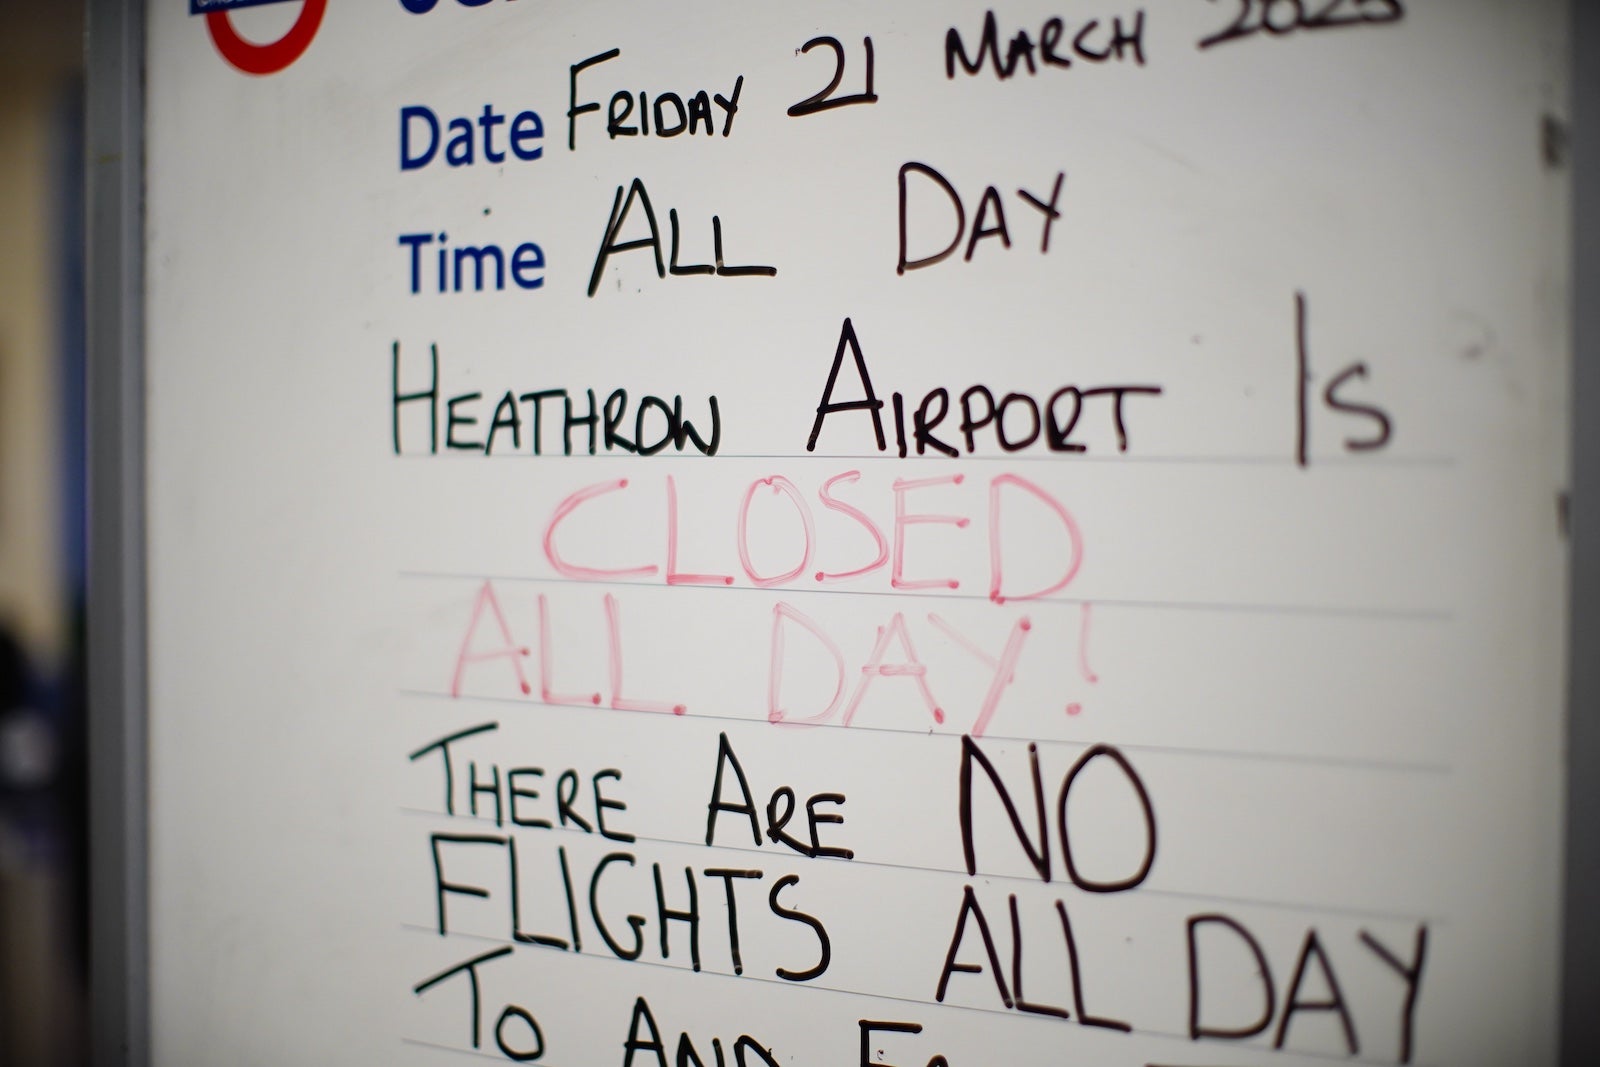 Date FRIDAY 21 MARCH 2025
Time ALL DAY
HEATHROW AIRPORT IS
CLOSED
ALL DAY!
THERE ARE NO
FLIGHTS ALL DAY
TO AND